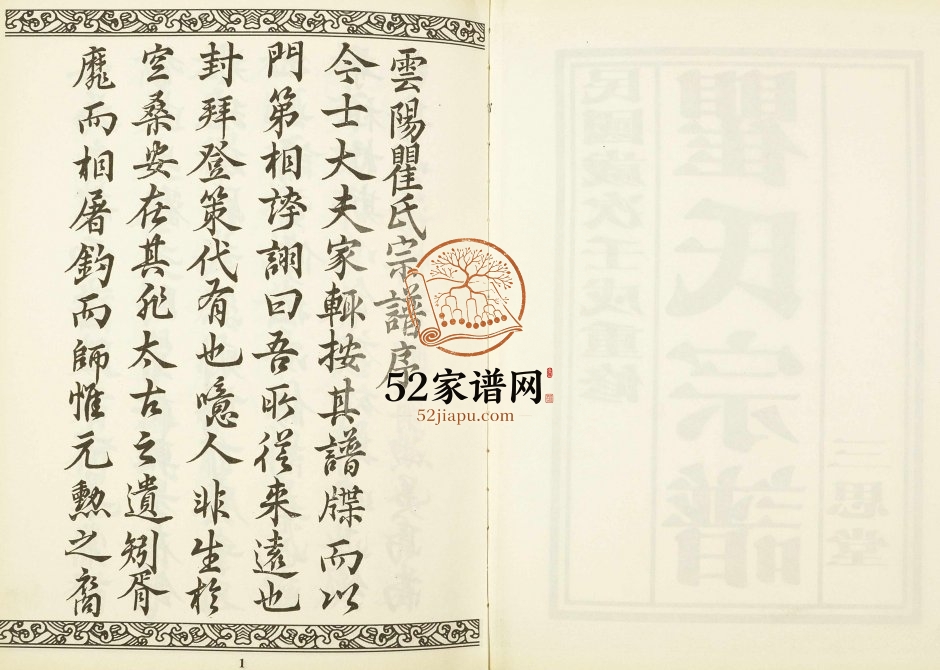 民國歲次壬戌重修
瞿氏宗譜
三思堂
雲陽瞿氏宗譜序
今士大夫家輒按其譜牒而以
門第相誇詡曰吾所從來遠也
封拜登策代有也噫人非生於
空桑安在其非太古之遺矧胥
靡而相屠釣而師惟元勳之裔
1
52家谱网
52jiapu.com